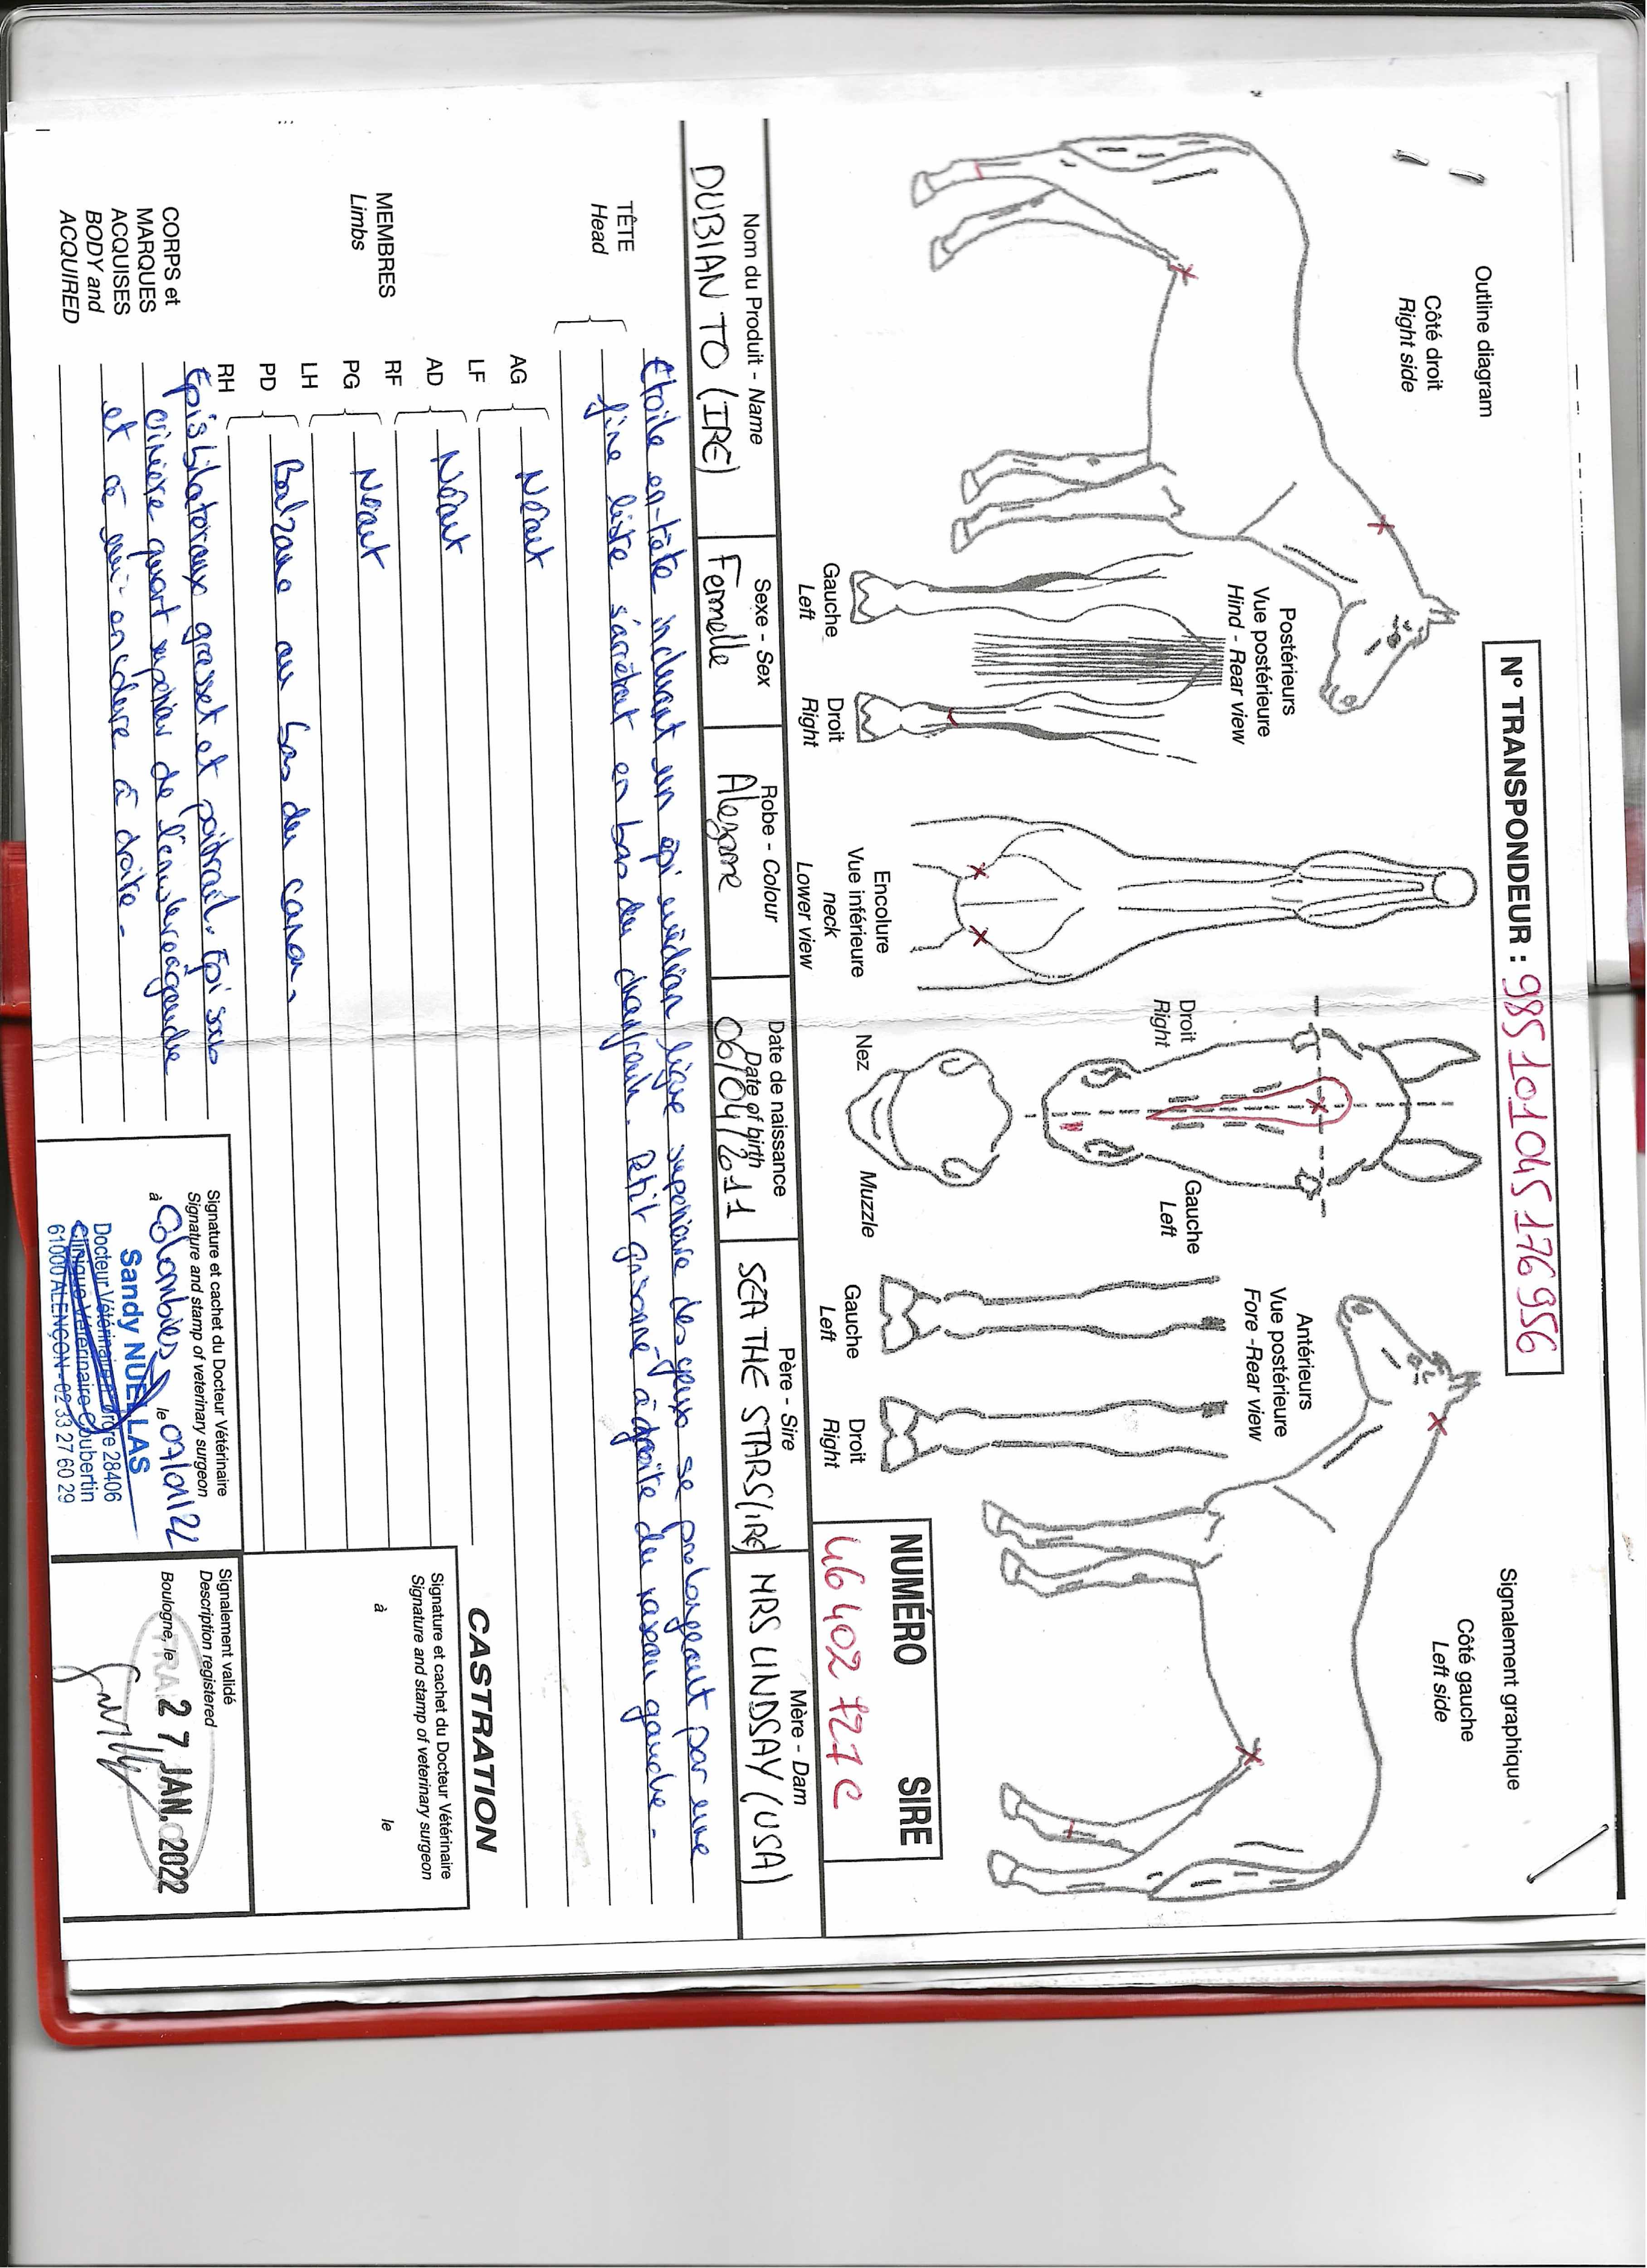 Outline diagram
Côté droit
Right side
N° TRANSPONDEUR : 985 101 045 176 956
Signalement graphique
Côté gauche
Left side
Postérieurs
Vue postérieure
Hind - Rear view
Gauche
Left
Droit
Right
Encolure
Vue inférieure
neck
Lower view
Droit
Right
Gauche
Left
Nez
Muzzle
Antérieurs
Vue postérieure
Fore -Rear view
Gauche
Left
Droit
Right
NUMÉRO SIRE
46 402 727 C
Nom du Produit - Name
DUBIAN TO (IRE)
Sexe - Sex
Femelle
Robe - Colour
Alezane
Date de naissance
Date of birth
06/04/2011
Père - Sire
SEA THE STARS (IRE)
Mère - Dam
MRS LINDSAY (USA)
TÊTE
Head
Etoile en-tête incluant un épi médian ligne supérieure des yeux se prolongeant par une
fine liste s'arrêtant en bas du chanfrein. Petit grisonné à droite du naseau gauche.
MEMBRES
Limbs
AG
LF
Néant
AD
RF
Néant
PG
LH
Néant
PD
RH
Balzane au bas du canon.
CORPS et
MARQUES
ACQUISES
BODY and
ACQUIRED
Epis bilatéraux grasset et poitrail. Epi sous
crinière quart supérieur de l'encolure à gauche
et à mi-encolure à droite.
CASTRATION
Signature et cachet du Docteur Vétérinaire
Signature and stamp of veterinary surgeon
à le
Signature et cachet du Docteur Vétérinaire
Signature and stamp of veterinary surgeon
à Colombiès le
Sandy NUELLAS
Docteur Vétérinaire n° ordre 28406
Clinique Vétérinaire Coubertin
61000 ALENÇON - 02 33 27 60 29
Signalement validé
Description registered
Boulogne, le 27 JAN. 2022